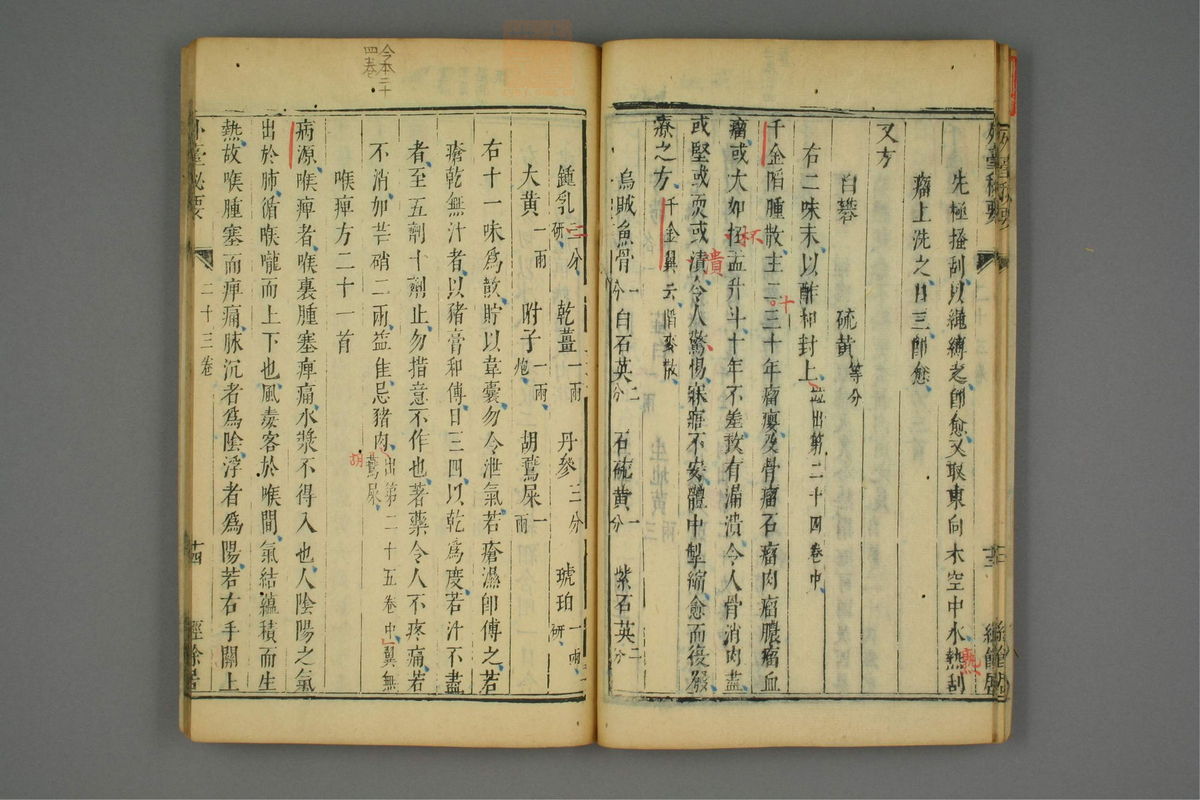 先極搔刮以繩縛之即愈又取東向木空中水熱刮
瘤上洗之日三即愈
又方
白礬 硫黃等分
右二味末以酢和封上並出第二十四卷中
千金陷腫散主二三十年瘤癭及骨瘤石瘤肉瘤膿瘤血
瘤或大如杯盂升斗十年不差致有漏潰令人骨消肉盡
或堅或耎或潰令人驚惕寐寤不安體中掣縮愈而復嚴
療之方千金翼云陷腫散
烏賊魚骨一分 白石英二分 石硫黃一分 紫石英二分
鍾乳三分研 乾薑一兩 丹參三分 琥珀一兩研
大黃一兩 附子一兩炮 胡鷰屎一兩
右十一味為散貯以韋囊勿令泄氣若瘡濕即傅之若
瘡乾無汁者以猪膏和傅日三四以乾為度若汁不盡
者至五劑十劑止勿惜意不作也著藥令人不疼痛若
不消加芒硝二兩益佳忌猪肉出第二十五卷中翼無鷰屎
胡
喉痺方二十一首
病源喉痺者喉裏腫塞痺痛水漿不得入也人陰陽之氣
出於肺循喉嚨而上下也風毒客於喉間氣結蘊積而生
熱故喉腫塞而痺痛脉沉者為陰浮者為陽若右手關上
外臺秘要 二十三卷 十四 經餘居
今本二十
四卷
杯
十
潰
熱